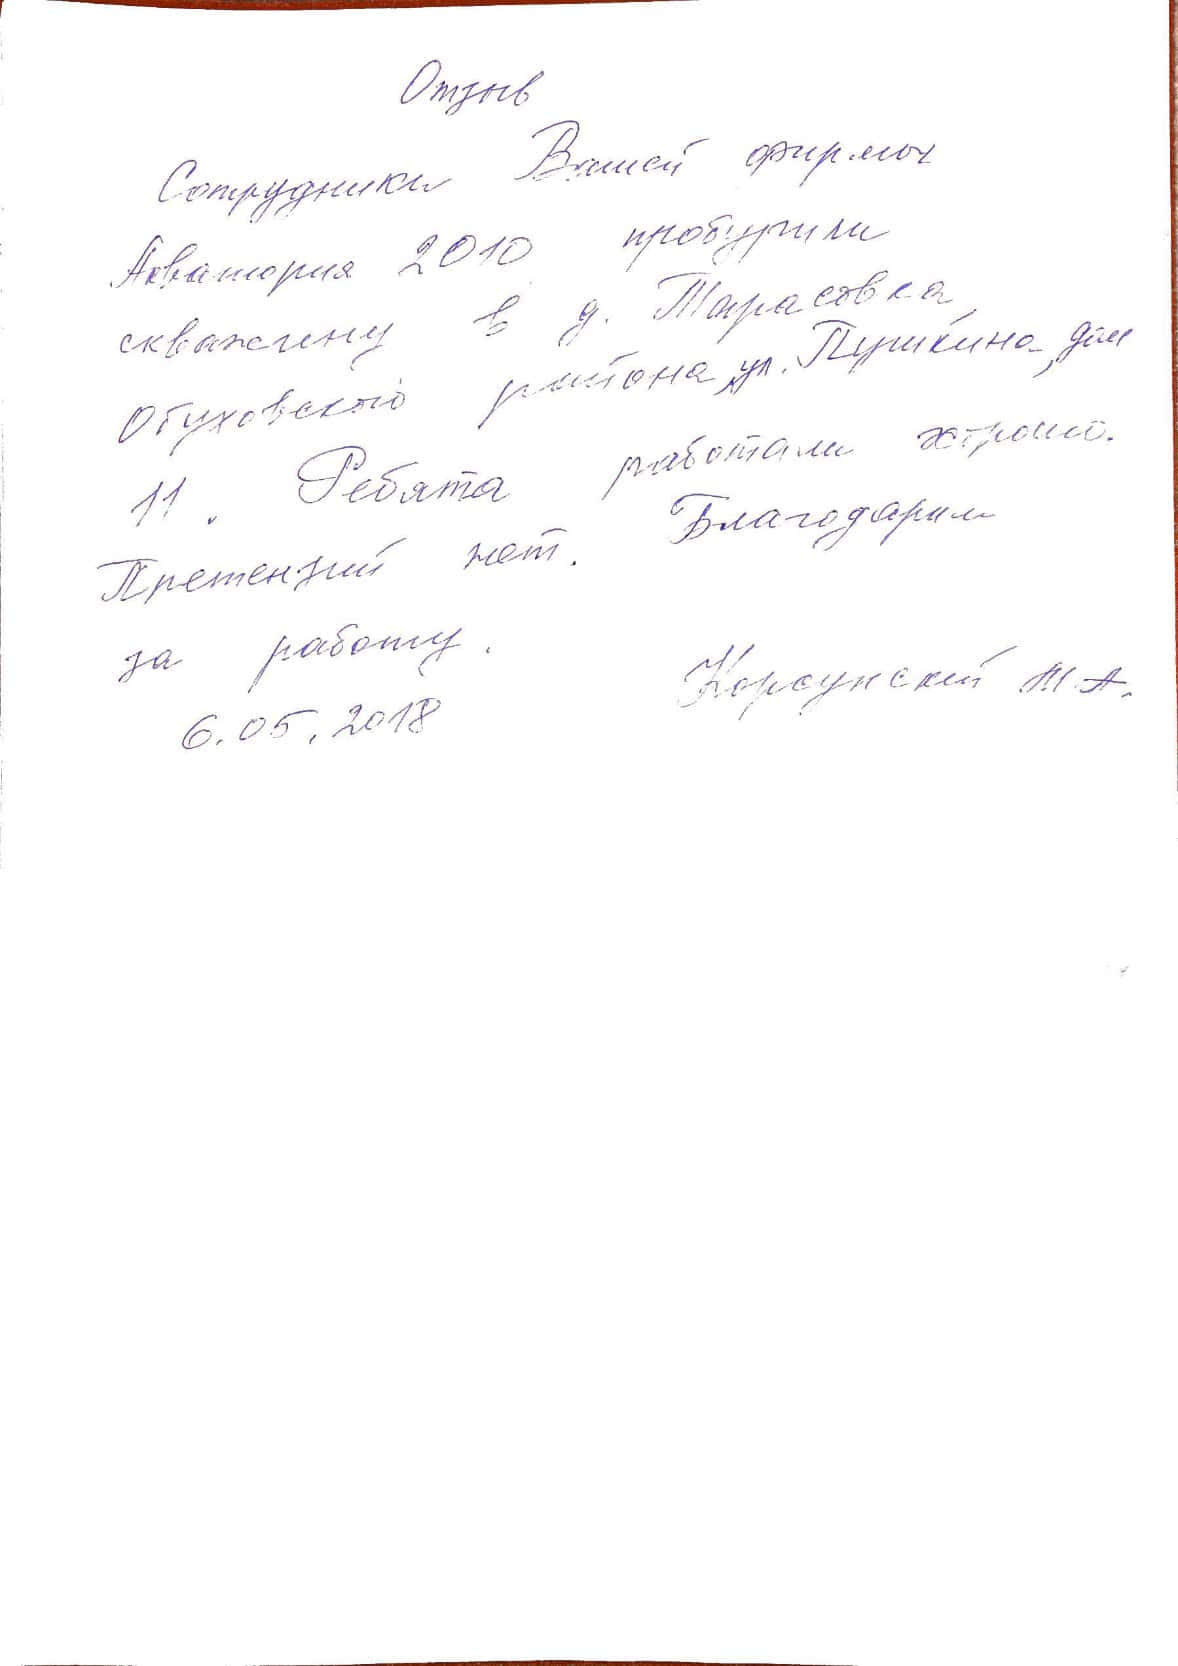 Отзыв
Сотрудники Вашей фирмы
Акватория 2010 пробурили
скважину в д. Тарасовка,
Обуховского района, ул. Пушкина, дом
11. Ребята работали хорошо.
Претензий нет. Благодарим
за работу.
Корсунский М.А.
6.05.2018